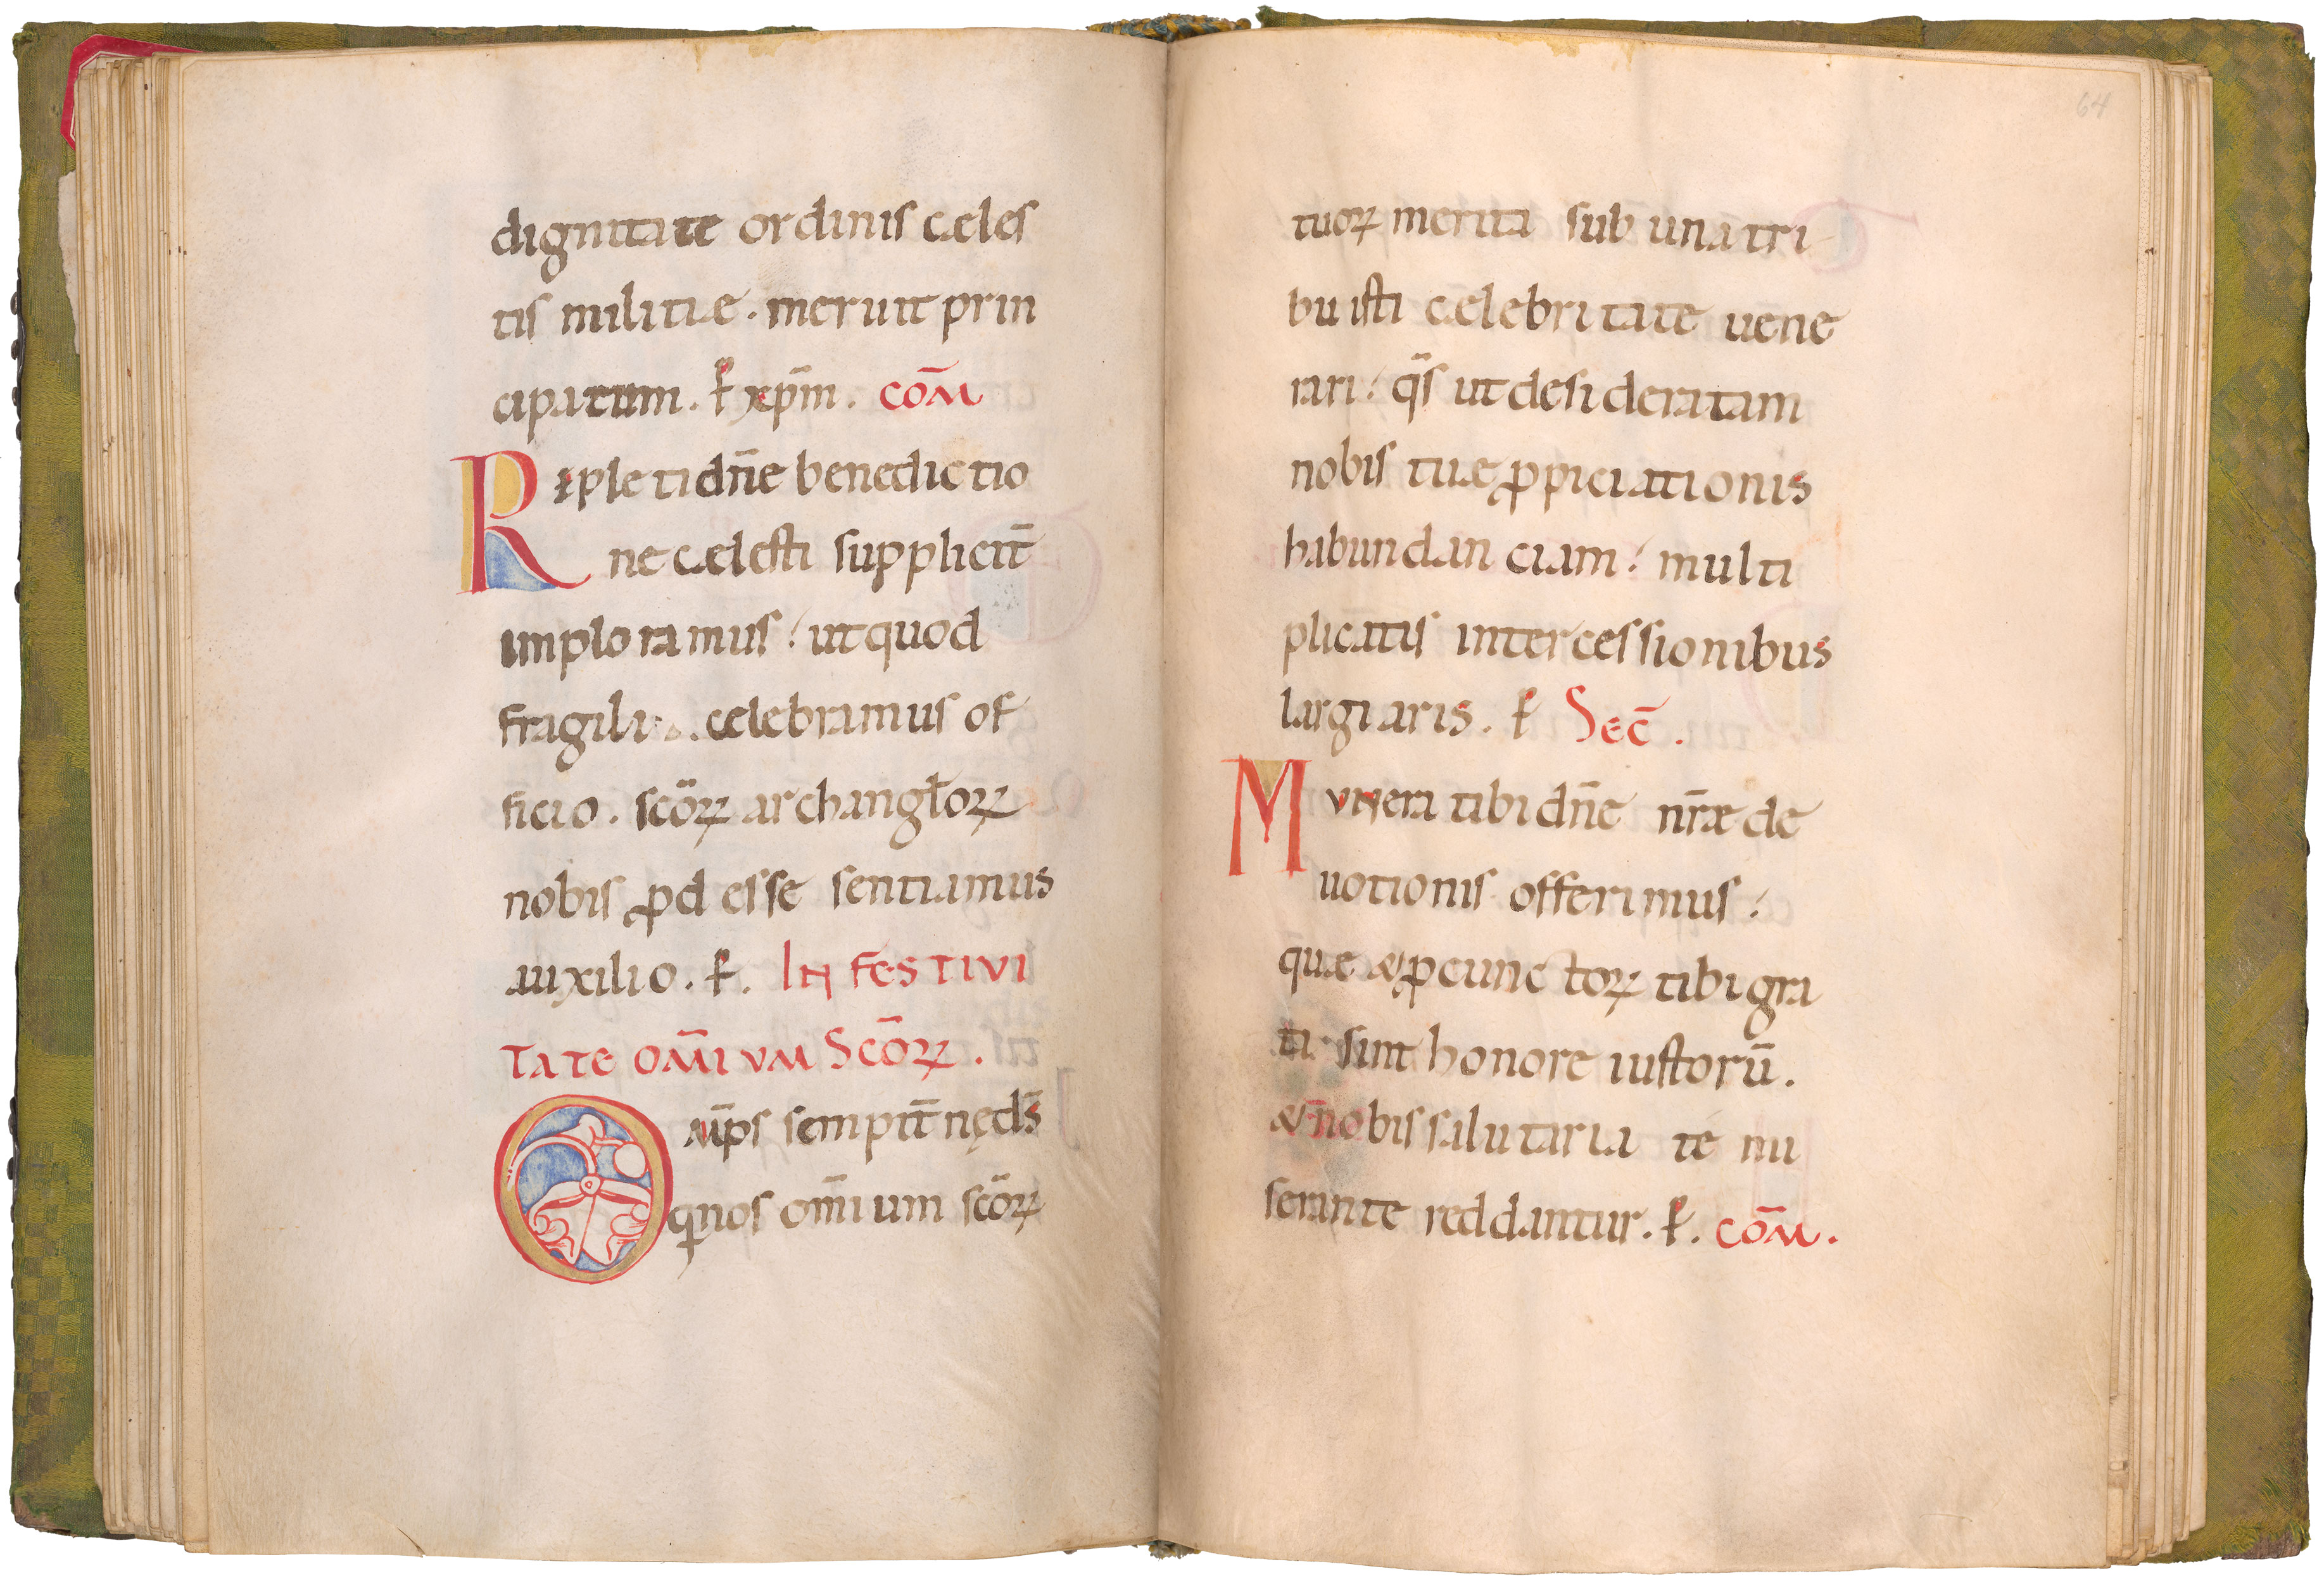 dignitate ordinis cęles
tis militiæ. meruit prin
cipatum. ꝑ xp̄m. COM̄
Repleti dn̄e benedictio
ne cælesti supplicit̄
imploramus ut quod
fragili celebramus of
ficio. sc̄oꝝ archangl̄oꝝ
nobis ꝓdesse sentiamus
auxilio. ꝑ. IN FESTIVI
TATE OM̄IUM SC̄OꝜ.
Om̄ps sempit̄nę ds̄
q nos om̄ium sc̄oꝝ
64
tuoꝝ merita sub una tri
buisti celebritate uene
rari qs̄ ut desideratam
nobis tuæ ꝓpiciationis
habundanciam multi
plicatis intercessionibus
largiaris. ꝑ SEC̄.
Munera tibi dn̄e nr̄æ de
uotionis offerimus
quæ & ꝓ cunctoꝝ tibi gra
ta sint honore iustorū.
& nobis salutaria te mi
serante reddantur. ꝑ. COM̄.